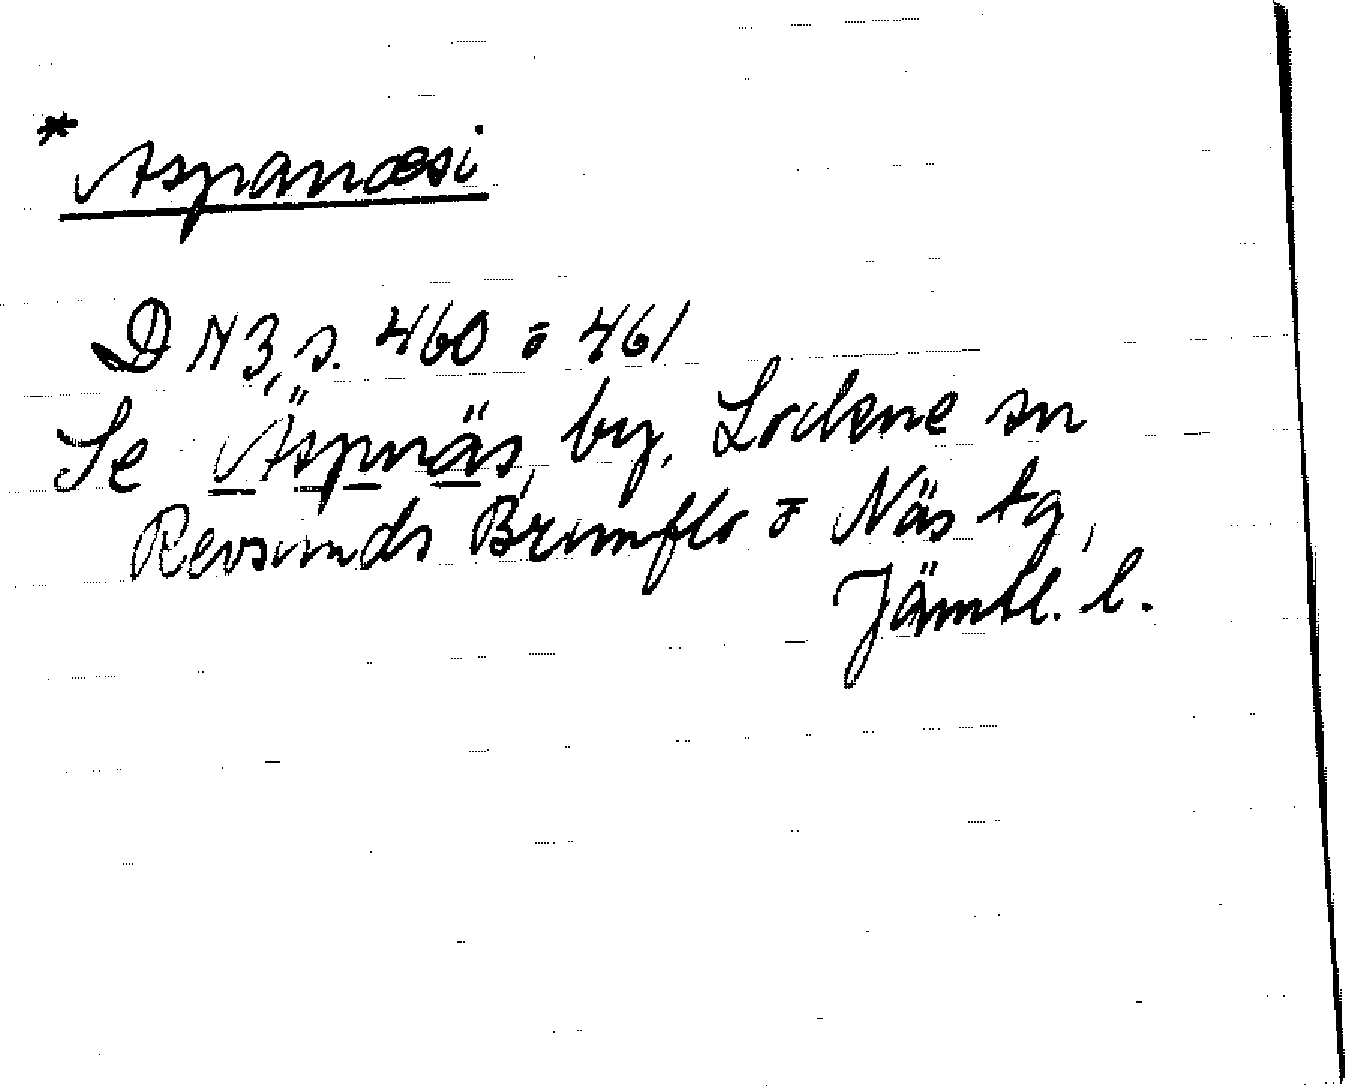 * Aspanæsi
DN 3, s. 460 o 461
Se Äspnäs, by, Lockne sn
Revsunds Brunflo o Näs tg,
Jämtl. l.